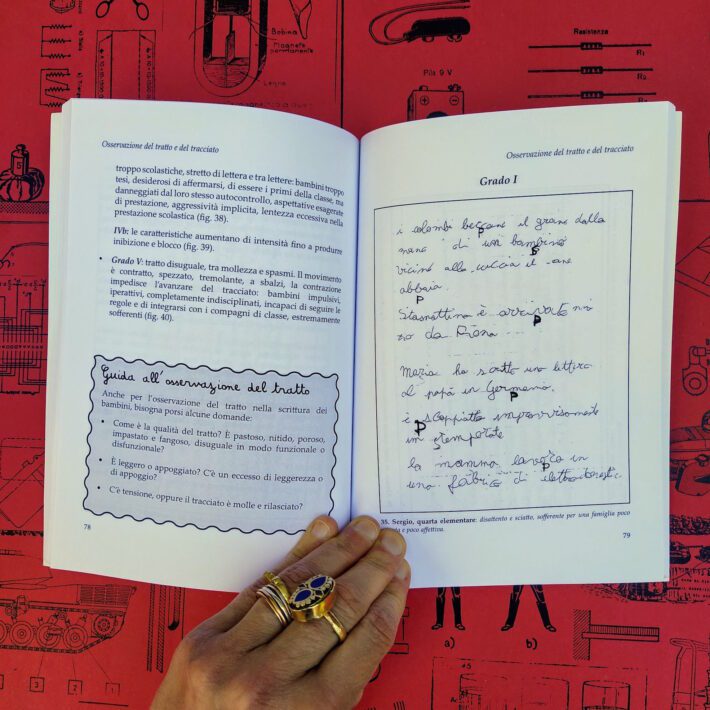 Bobina
Magnete
permanente
Legno
Pila 9 V
Resistenza
R₁
R₂
R₃
Osservazione del tratto e del tracciato
troppo scolastiche, stretto di lettera e tra lettere: bambini troppo
tesi, desiderosi di affermarsi, di essere i primi della classe, ma
danneggiati dal loro stesso autocontrollo, aspettative esagerate
di prestazione, aggressività implicita, lentezza eccessiva nella
prestazione scolastica (fig. 38).
IVb: le caratteristiche aumentano di intensità fino a produrre
inibizione e blocco (fig. 39).
• Grado V: tratto disuguale, tra mollezza e spasmi. Il movimento
è contratto, spezzato, tremolante, a sbalzi, la contrazione
impedisce l'avanzare del tracciato: bambini impulsivi,
iperattivi, completamente indisciplinati, incapaci di seguire le
regole e di integrarsi con i compagni di classe, estremamente
sofferenti (fig. 40).
Guida all'osservazione del tratto
Anche per l'osservazione del tratto nella scrittura dei
bambini, bisogna porsi alcune domande:
• Come è la qualità del tratto? È pastoso, nitido, poroso,
impastato e fangoso, disuguale in modo funzionale o
disfunzionale?
• È leggero o appoggiato? C'è un eccesso di leggerezza o
di appoggio?
• C'è tensione, oppure il tracciato è molle e rilasciato?
78
Osservazione del tratto e del tracciato
Grado I
i colombi beccano il grano dalla
mano di un bambino
vicino alla cuccia il cane
abbaia.
P
è arrivato
P
da
Maria ha scritto una lettera
al papà in Germania.
è scoppiata improvvisamente
P
la mamma lavora in
P
una di
35. Sergio, quarta elementare: disattento e sciatto, sofferente per una famiglia poco
e poco affettiva.
79
a)
b)
3
2
1
5